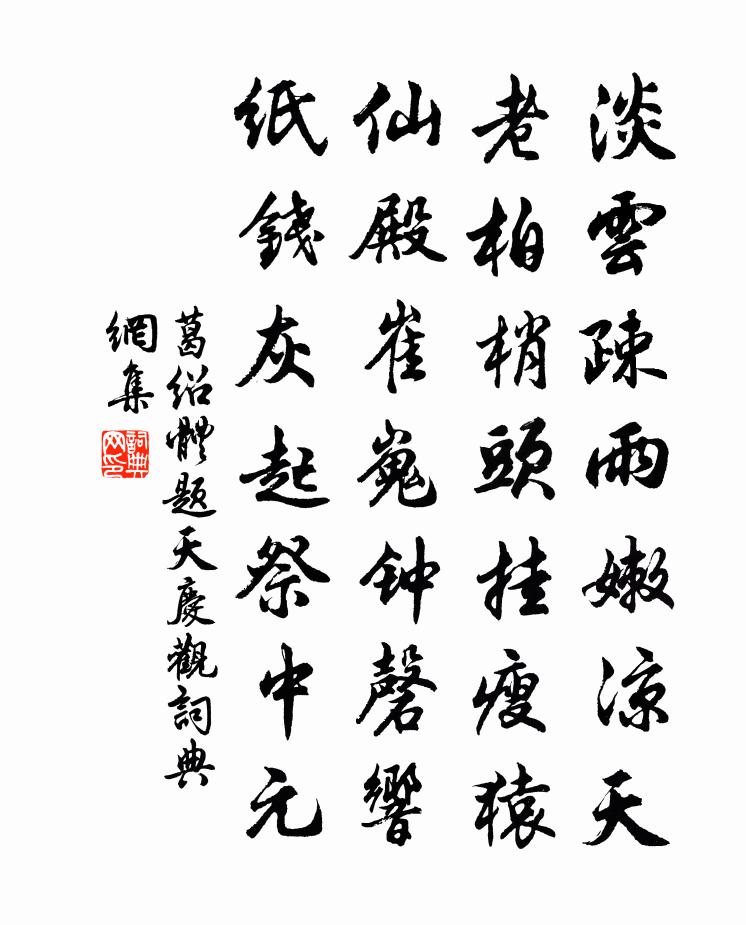 淡雲疎雨嫩涼天
老柏梢頭挂瘦猿
仙殿崔嵬钟磬響
紙錢灰起祭中元
葛绍體题天慶觀詞典
網集
詞典
网印